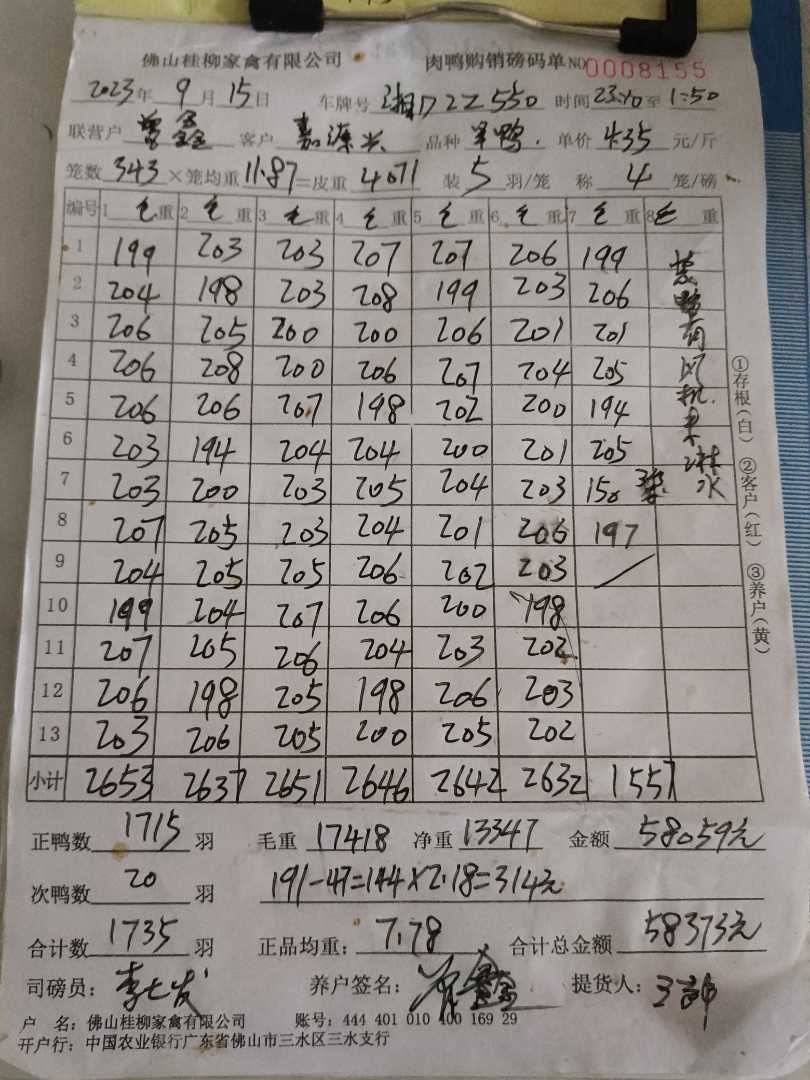 佛山桂柳家禽有限公司 肉鸭购销磅码单 NO 0008155
2023年 9月 15日 车牌号 湘D22550 时间 23:10 至 1:50
联营户 曾鑫 客户 嘉源兴 品种 单价 4.35 元/斤
笼数 343 ×笼均重 11.87 =皮重 4071 装 5 羽/笼 称 4 笼/磅
编号 1 毛重 2 毛重 3 毛重 4 毛重 5 毛重 6 毛重 7 毛重 8 毛重
1 199 203 203 207 207 206 199
2 204 198 203 208 199 203 206
3 206 205 200 200 206 201 201
4 206 208 200 206 207 204 205
5 206 206 207 198 202 200 194
6 203 194 204 204 200 201 205
7 203 200 203 205 204 203 150
8 207 205 203 204 201 206 197
9 204 205 205 206 202 203
10 199 204 207 206 200 198
11 207 205 206 204 203 202
12 206 198 205 198 206 203
13 203 206 205 200 205 202
小计 2653 2637 2651 2646 2642 2632 1557
装鸭有风机来淋水
①存根(白) ②客户(红) ③养户(黄)
正鸭数 1715 羽 毛重 17418 净重 13347 金额 58059元
次鸭数 20 羽 191-47=144×2.18=314元
合计数 1735 羽 正品均重: 7.78 合计总金额 58373元
司磅员: 李七发 养户签名: 曾鑫 提货人:
户 名: 佛山桂柳家禽有限公司 账号: 444 401 010 400 169 29
开户行: 中国农业银行广东省佛山市三水区三水支行